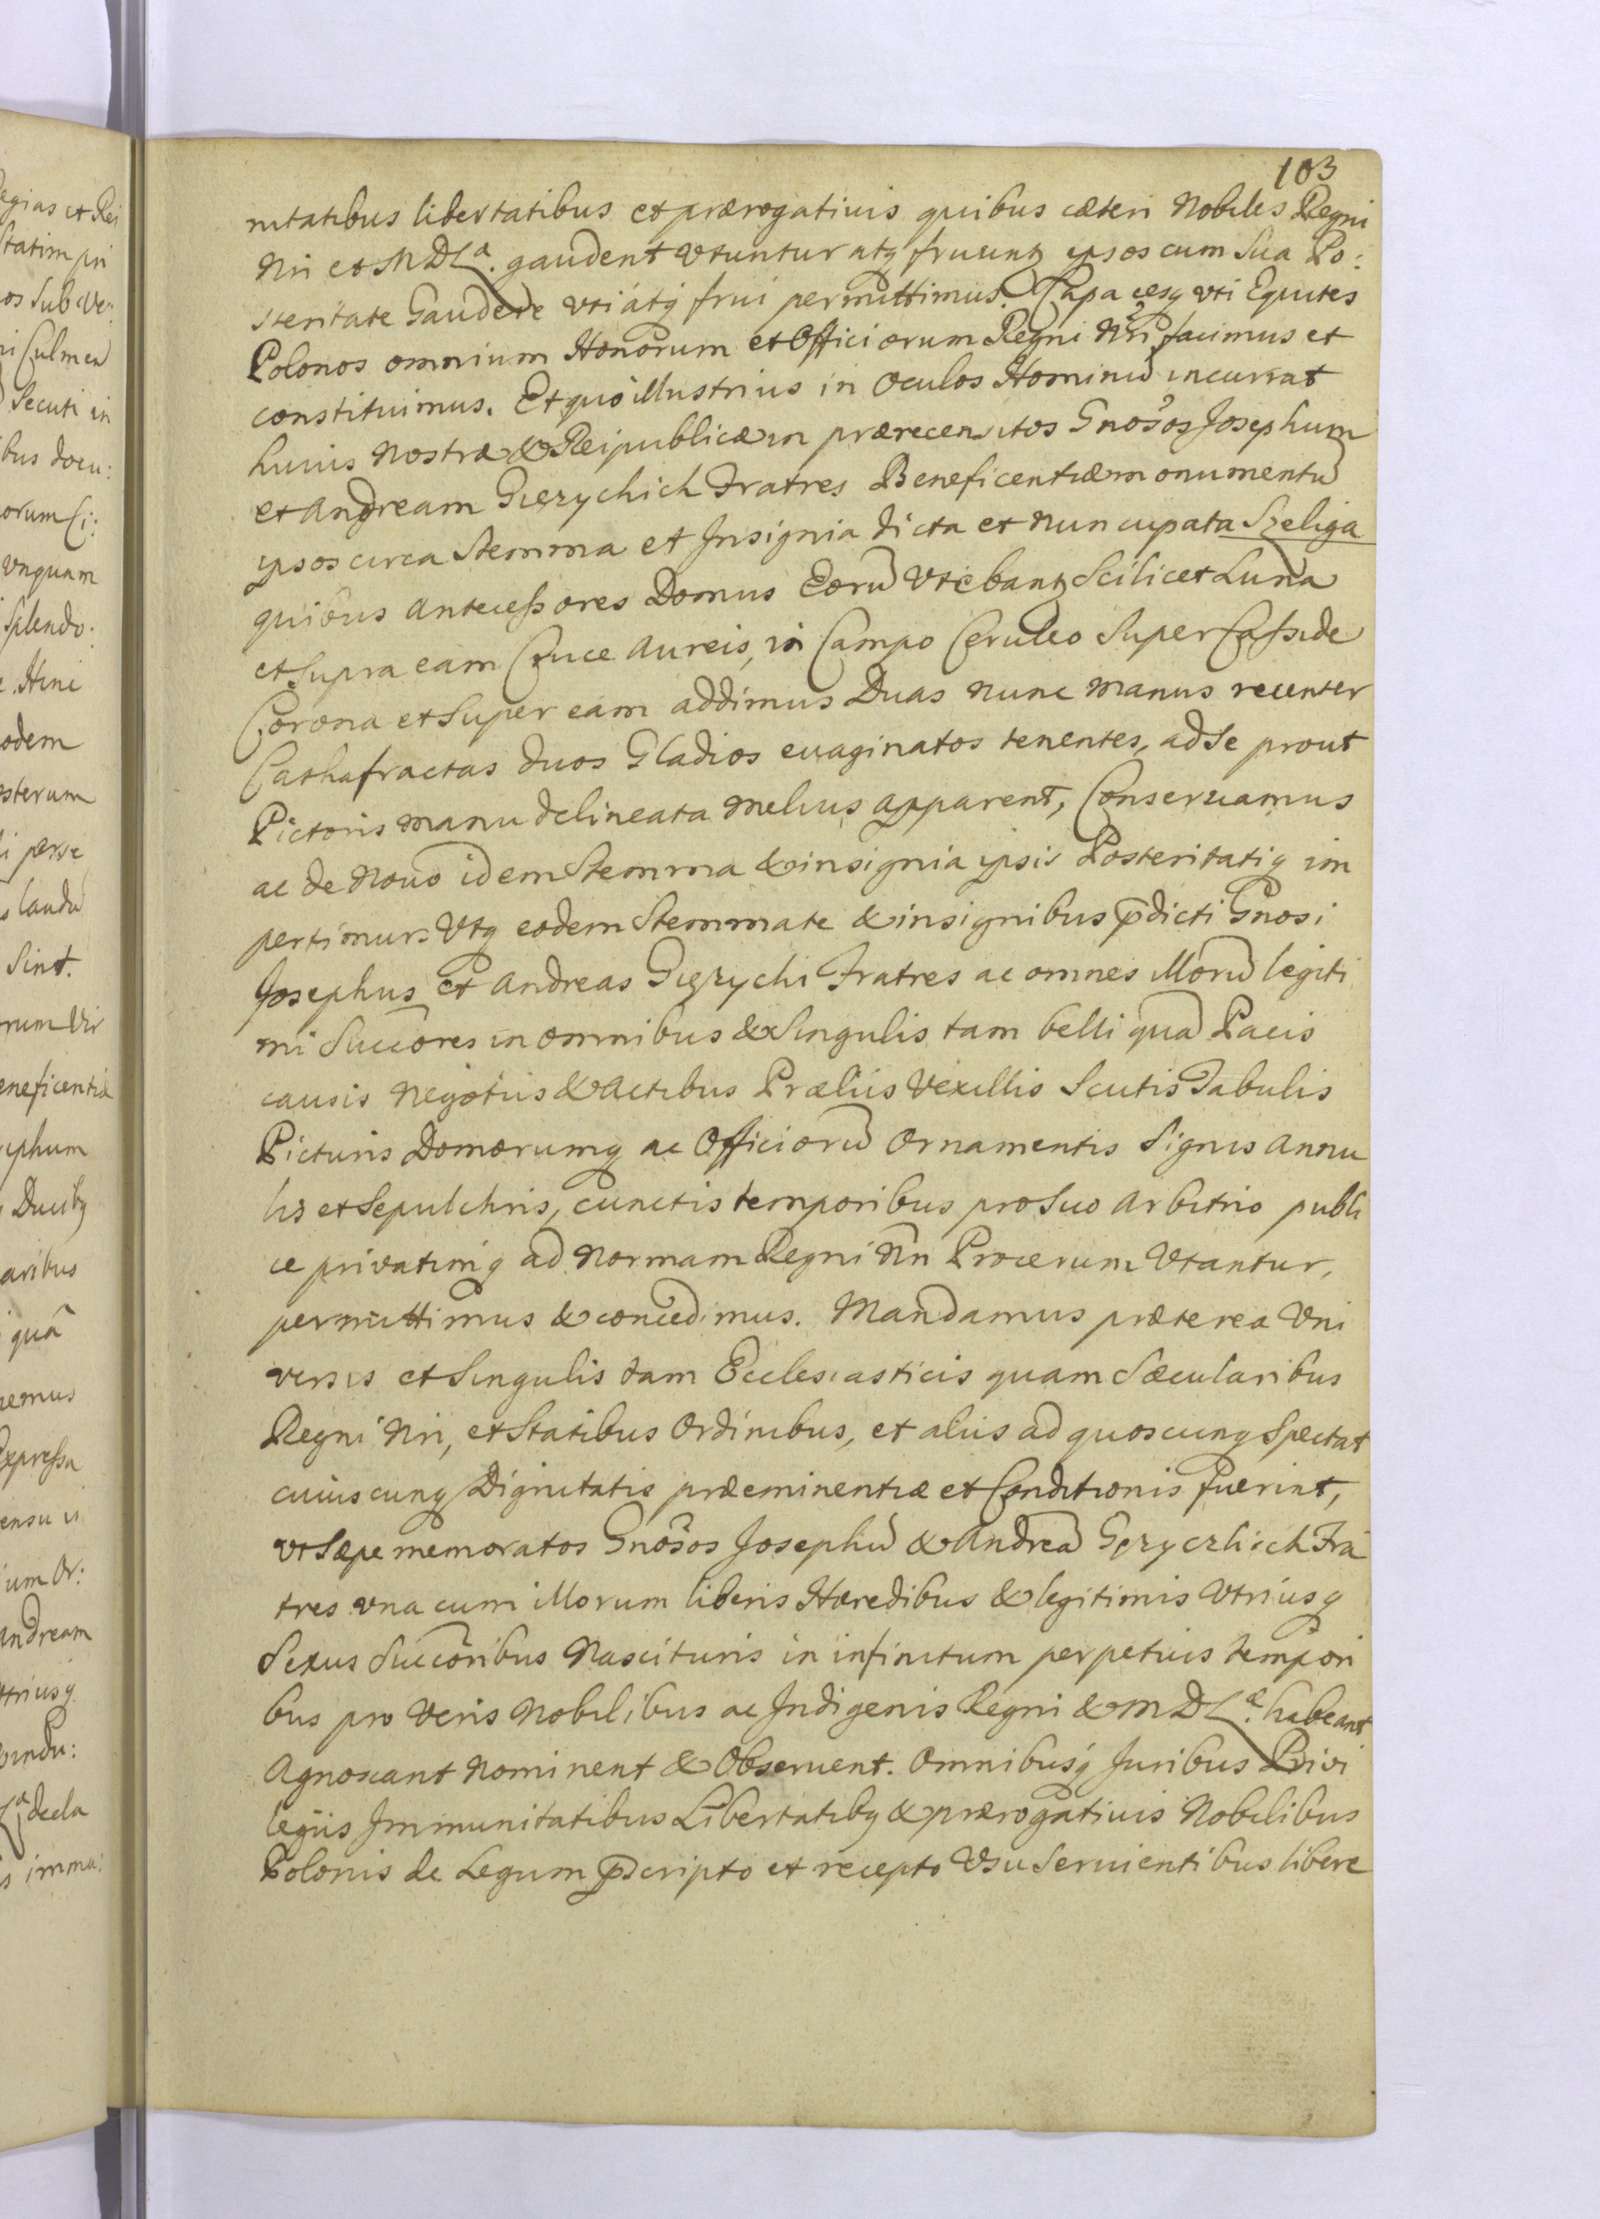 103
nitatibus libertatibus et prærogativis quibus cæteri Nobiles Regni
Nri et M D L. gaudent Utuntur atq fruuntq ipsos cum Sua Po:
steritate Gaudere uti átq frui permittimus. Capacesq uti Equites
Polonos omnium Honorum et Officiorum Regni Nri facimus et
constituimus. Et quo illustrius in Oculos Hominū incurrat
huius Nostræ & Reipublicæ in prærecensitos Gnosos Josephum
et Andream Gierzychich Fratres Beneficentiæ monumentū
ipsos circa Stemma et Insignia dicta et nuncupata Szeliga
quibus Antecessores Domus Eorū Utebantq Scilicet Luna
et Supra eam Cruce Aureis, in Campo Ceruleo Super Casside
Corona et Super eam addimus Duas nunc Manus recenter
Cathafractas duos Gladios evaginatos tenentes, ad Se prout
Pictoris manu delineata melius apparent, Conservamus
ac de Novo idem Stemma & insignia ipsis Posteritatiq im
pertimur. Utq eodem Stemmate & insignibus p̄dicti Gnosi
Josephus et Andreas Gierzychi Fratres ac omnes Illorū legiti
mi Succōres in omnibus & Singulis tam belli quā Pacis
causis Negotiis & Actibus Præliis Vexillis Scutis Tabulis
Picturis Domorumq ac Officiorū Ornamentis Signis Annu
lis et Sepulchris, cunctis temporibus pro Suo Arbitrio publi
ce privatimq ad Normam Regni Nri Procerum Utantur,
permittimus & concedimus. Mandamus præterea Uni
versis et Singulis tam Ecclesiasticis quam Sæcularibus
Regni Nri, et Statibus Ordinibus, et aliis ad quoscunq Spectat
cuiuscunq Dignitatis præeminentiæ et Conditionis fuerint,
ut Sæpe memoratos Gnosos Josephū & Andreā Fra
tres una cum illorum liberis Hæredibus & legitimis Utriusq
Sexus Succōribus Nascituris in infinitum perpetuis tempori
bus pro Veris Nobilibus ac Indigenis Regni & M D L. habeant
Agnoscant Nominent & Observent. Omnibusq Juribus Privi
legiis Immunitatibus Libertatibq & prærogativis Nobilibus
Polonis de Legum p̄scripto et recepto Usu Servientibus libere